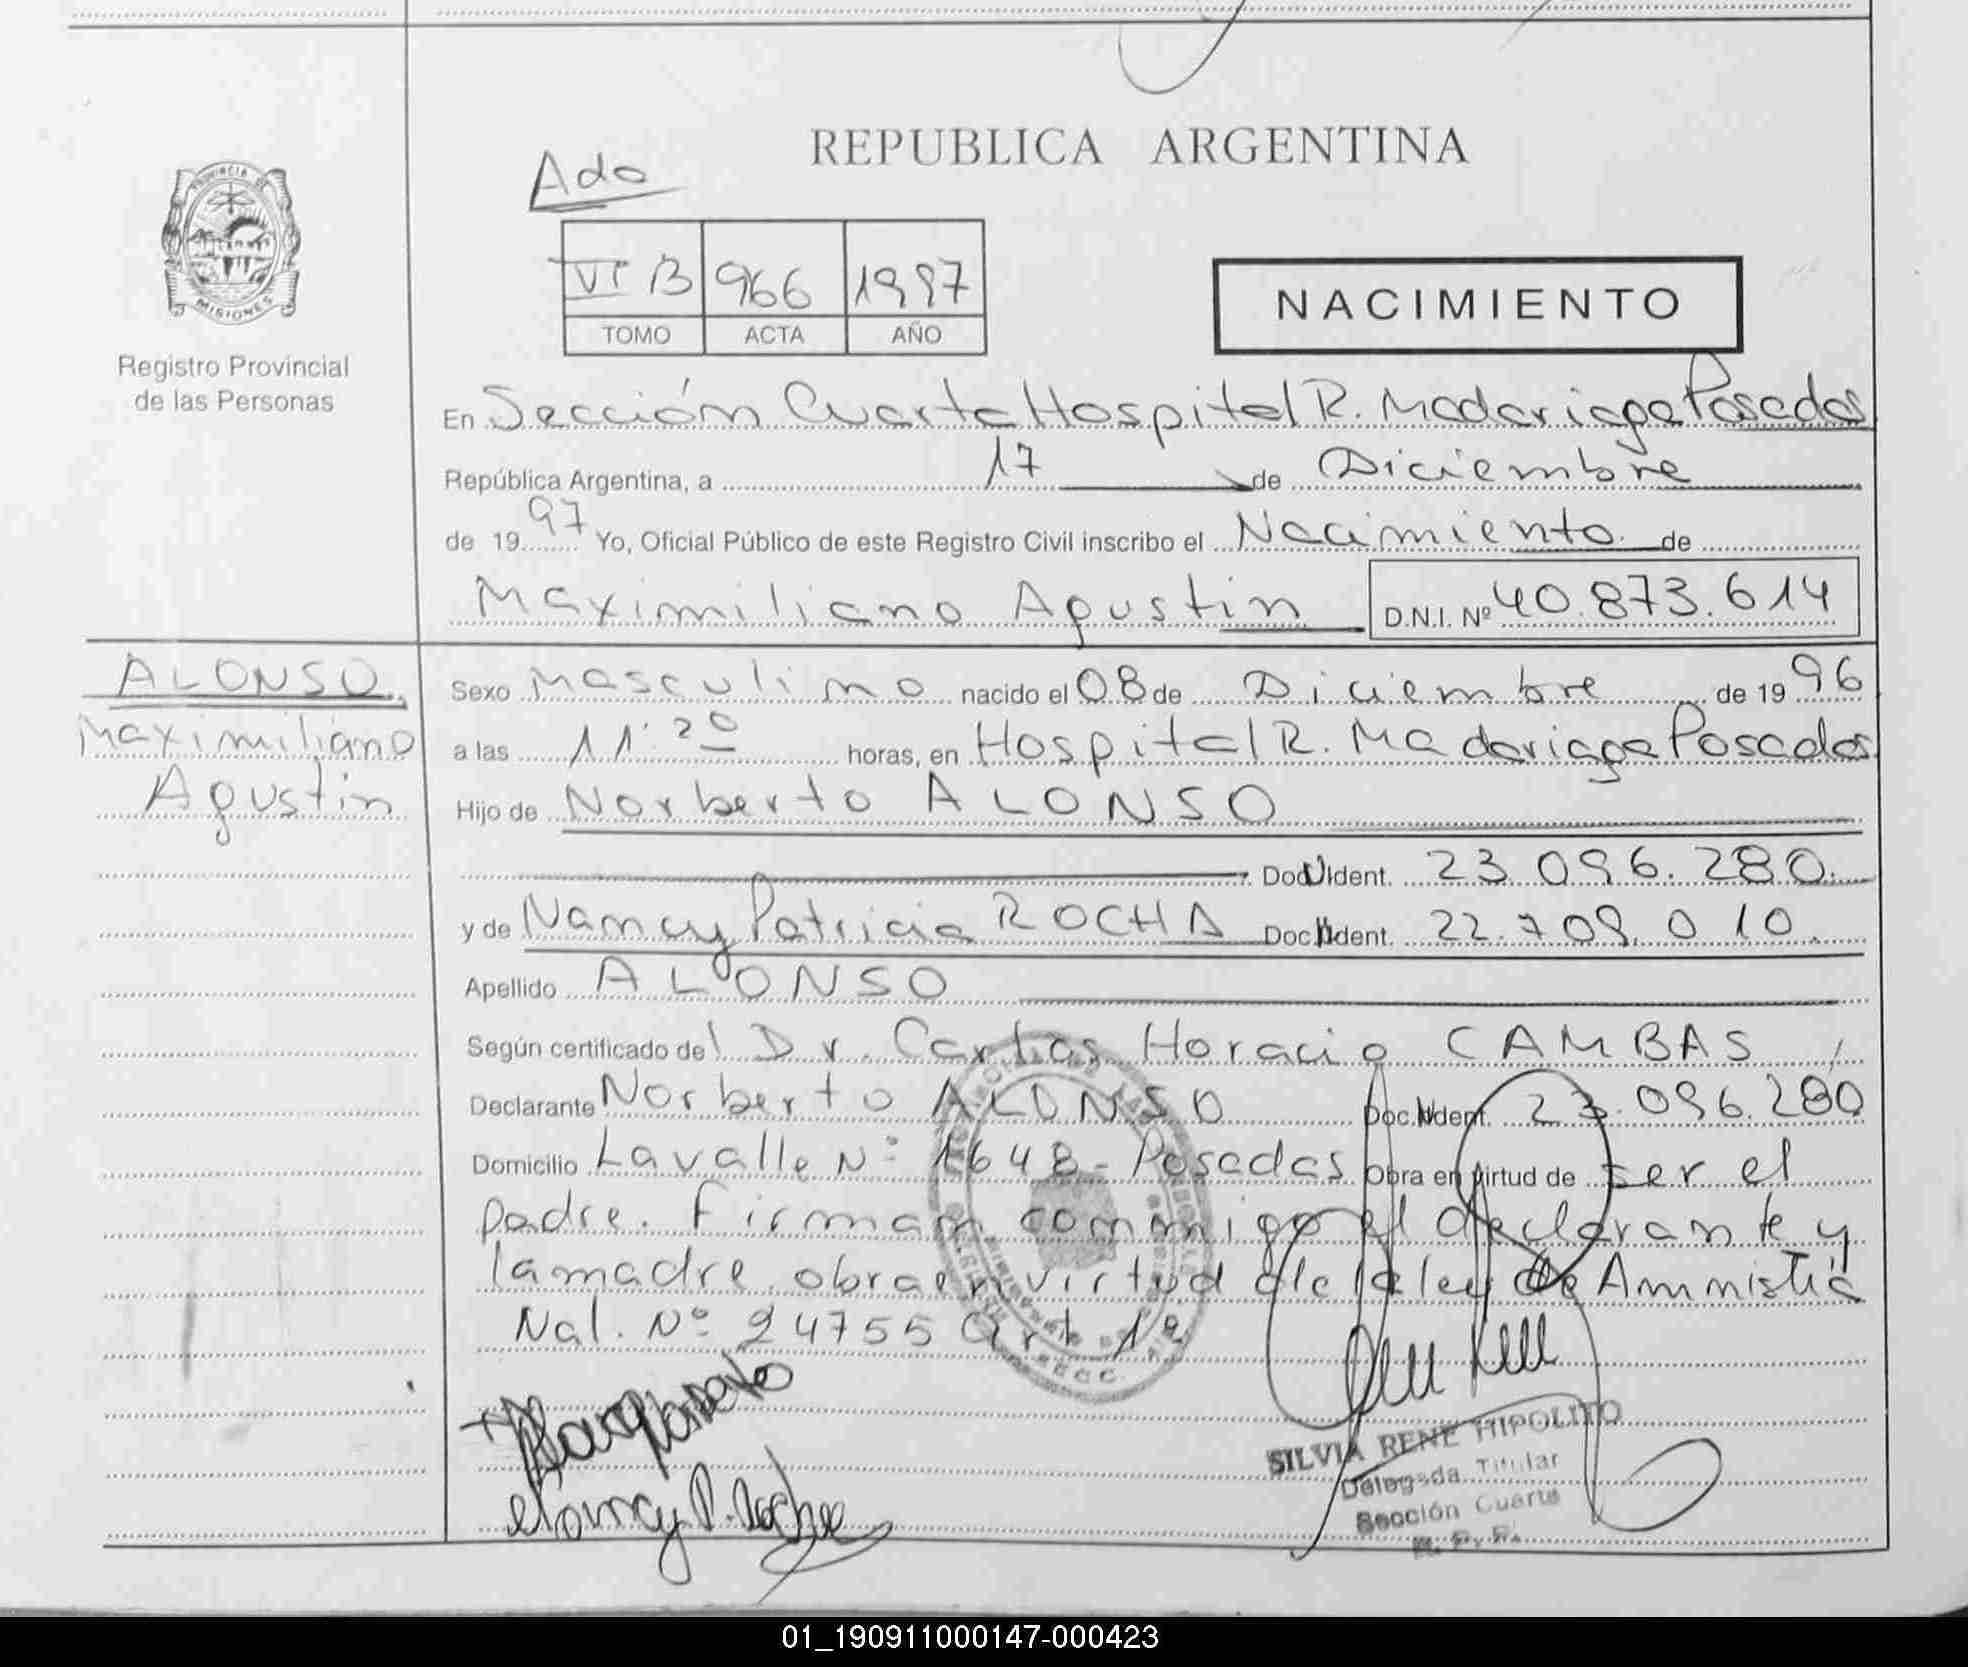 REPUBLICA ARGENTINA
Ado
PROVINCIA DE
MISIONES
Registro Provincial
de las Personas
VI B 966 1997
TOMO ACTA AÑO
NACIMIENTO
En Sección Cuarta Hospital R. Madariaga Posadas
República Argentina, a 17 de Diciembre
de 1997 Yo, Oficial Público de este Registro Civil inscribo el Nacimiento de
Maximiliano Agustin D.N.I. Nº 40.873.614
ALONSO
Maximiliano
Agustin
Sexo Masculino nacido el 08 de Diciembre de 1996
a las 11:20 horas, en Hospital R. Madariaga Posadas
Hijo de Norberto ALONSO
Doc. Ident. 23.096.280.
y de Nancy Patricia ROCHA Doc. Ident. 22.709.010.
Apellido ALONSO
Según certificado del Dr. Carlos Horacio CAMBAS
Declarante Norberto ALONSO Doc. Ident. 23.096.280
Domicilio Lavalle Nº 1648 - Posadas Obra en virtud de ser el
padre. Firman conmigo el declarante y
la madre, obra en virtud de la ley de Amnistia
Nal. Nº 24755 art 1º
Nancy P. Rocha
SILVIA RENE HIPOLITO
Delegada Titular
Sección Cuarta
R. P. P.
01_190911000147-000423